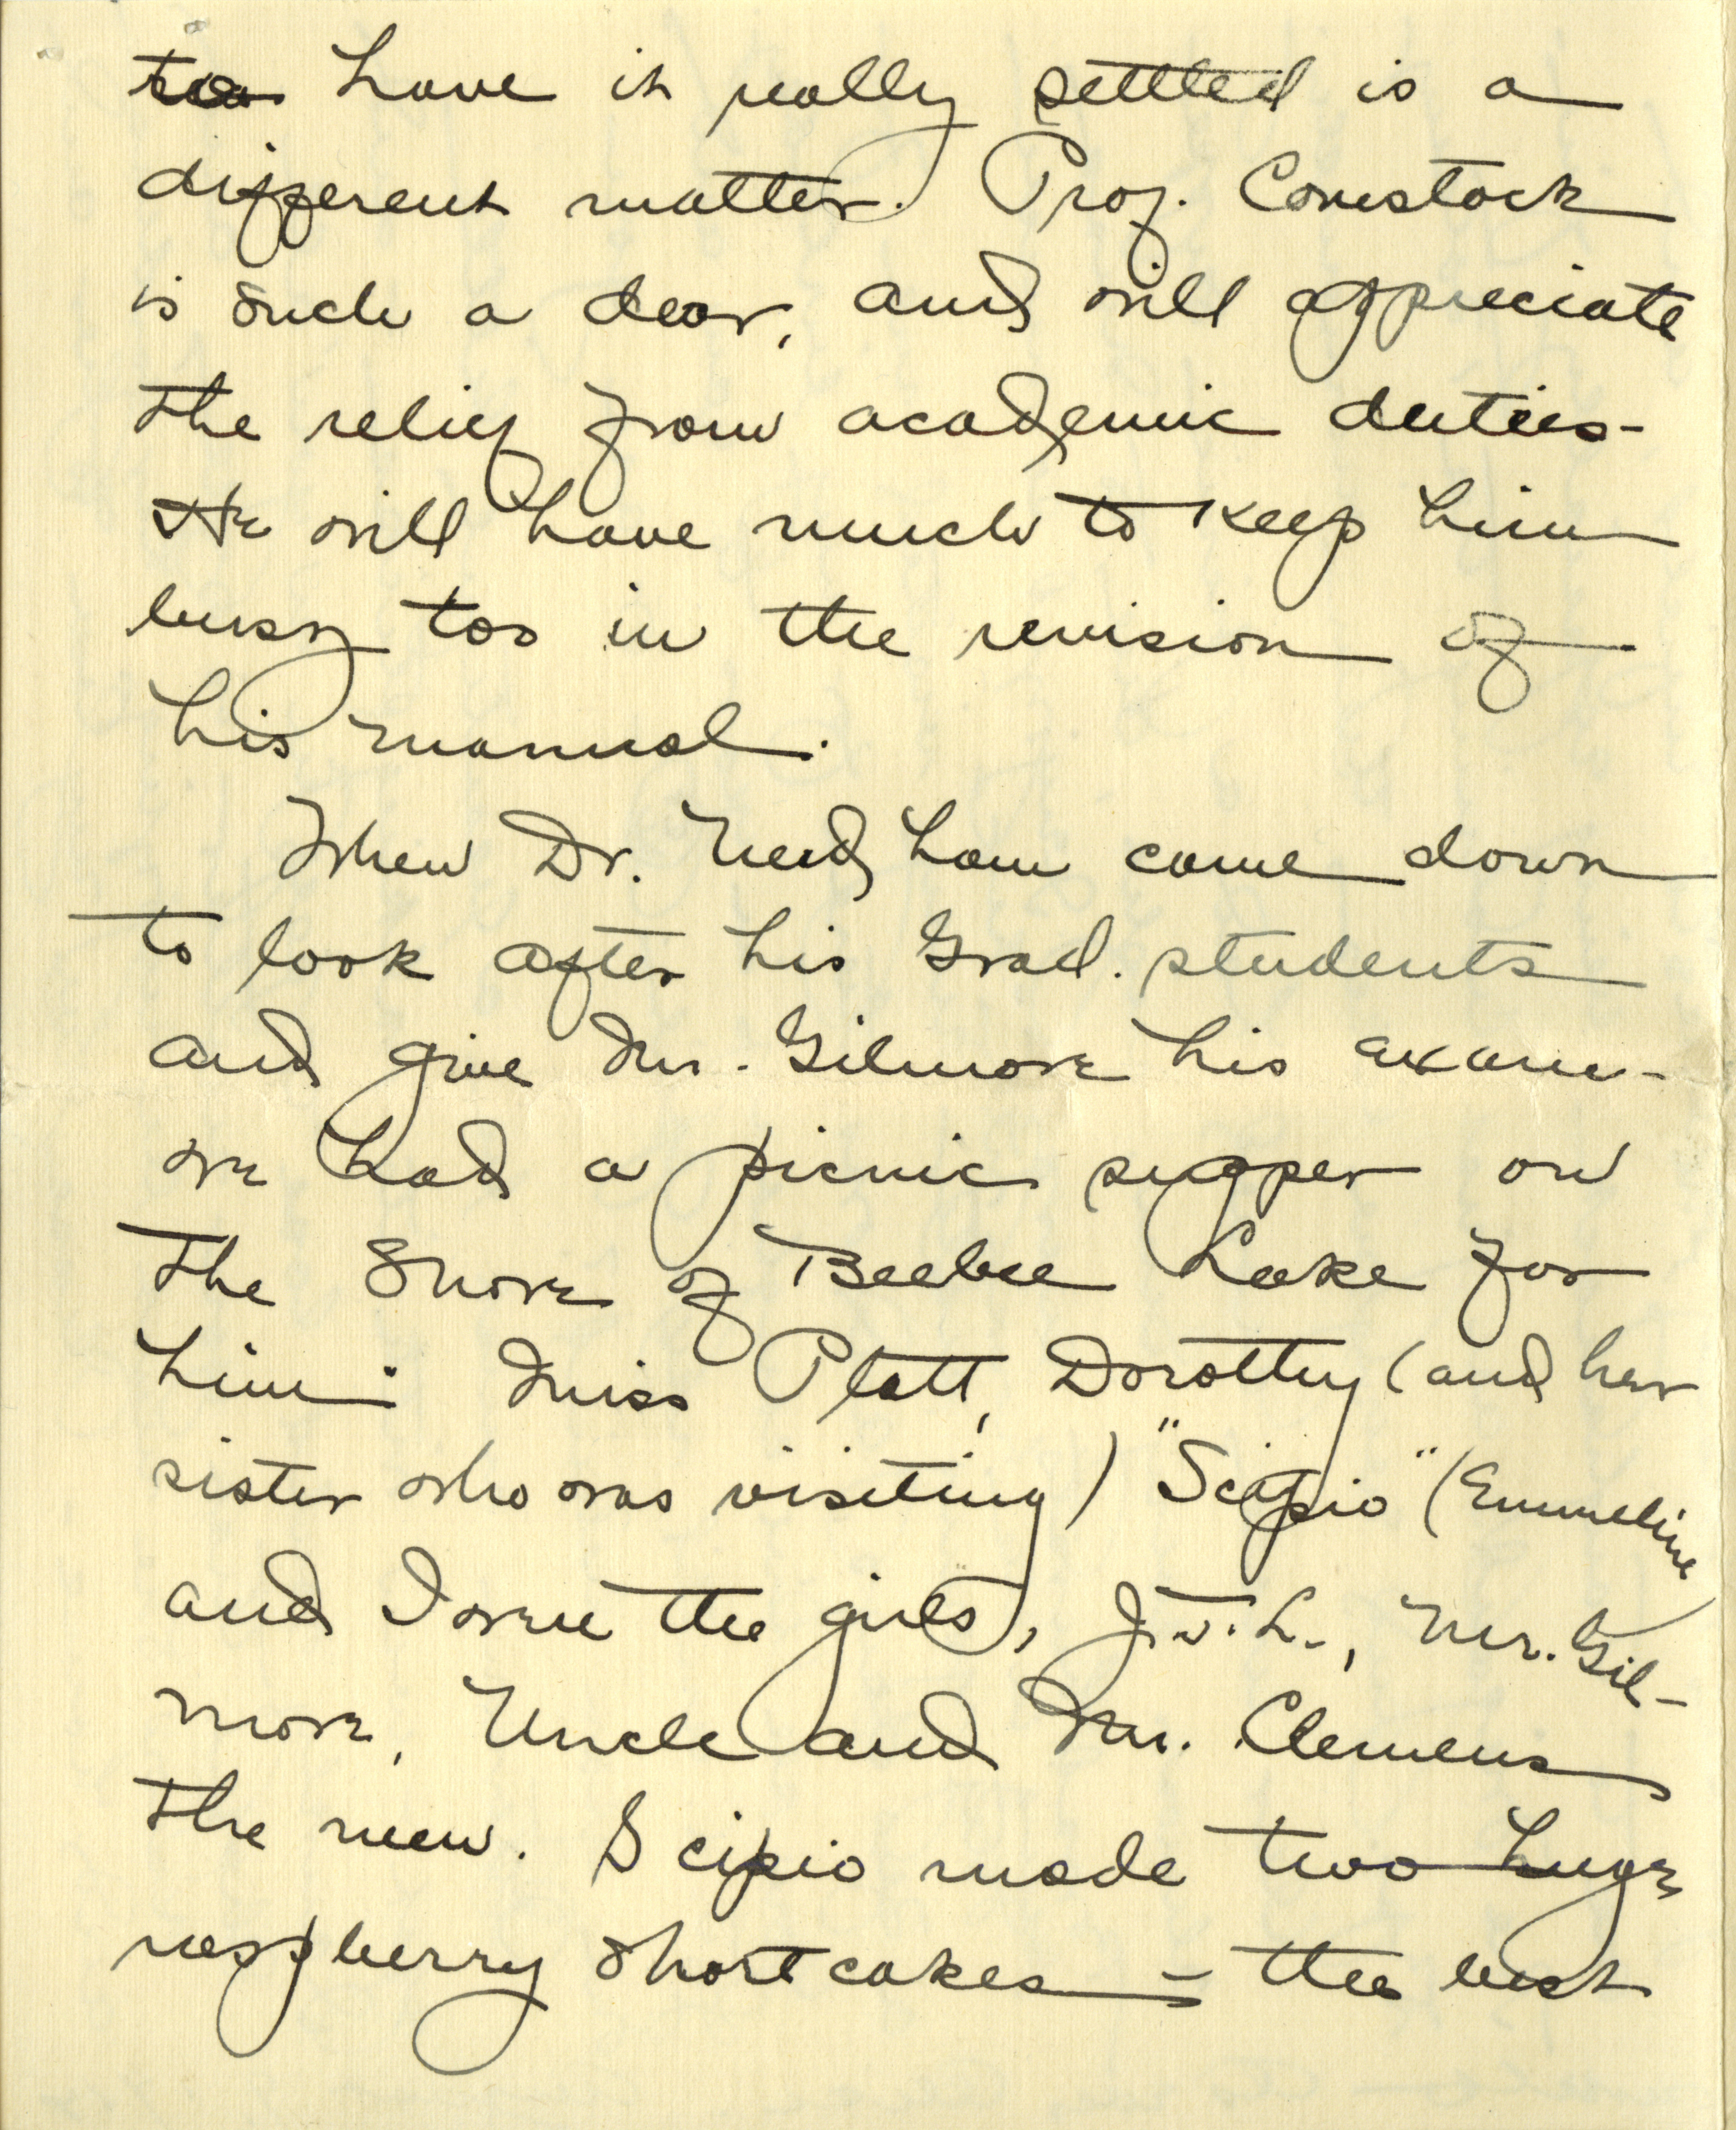 to have it really settled is a
different matter. Prof. Comstock
is such a dear, and will appreciate
the relief from academic duties-
He will have much to keep him
busy too in the revision of
his manual.
When Dr. Needham came down
to look after his Grad. students
and give Mr. Gilmore his exam-
we had a picnic supper on
the shore of Beebee Lake for
him: Miss Platt, Dorothy (and her
sister who was visiting) "Scipio" (Emmeline
and I were the girls, J.T.L., Mr. Gil-
more, Uncle and Mr. Clemens
the men. Scipio made two huge
raspberry shortcakes - the best